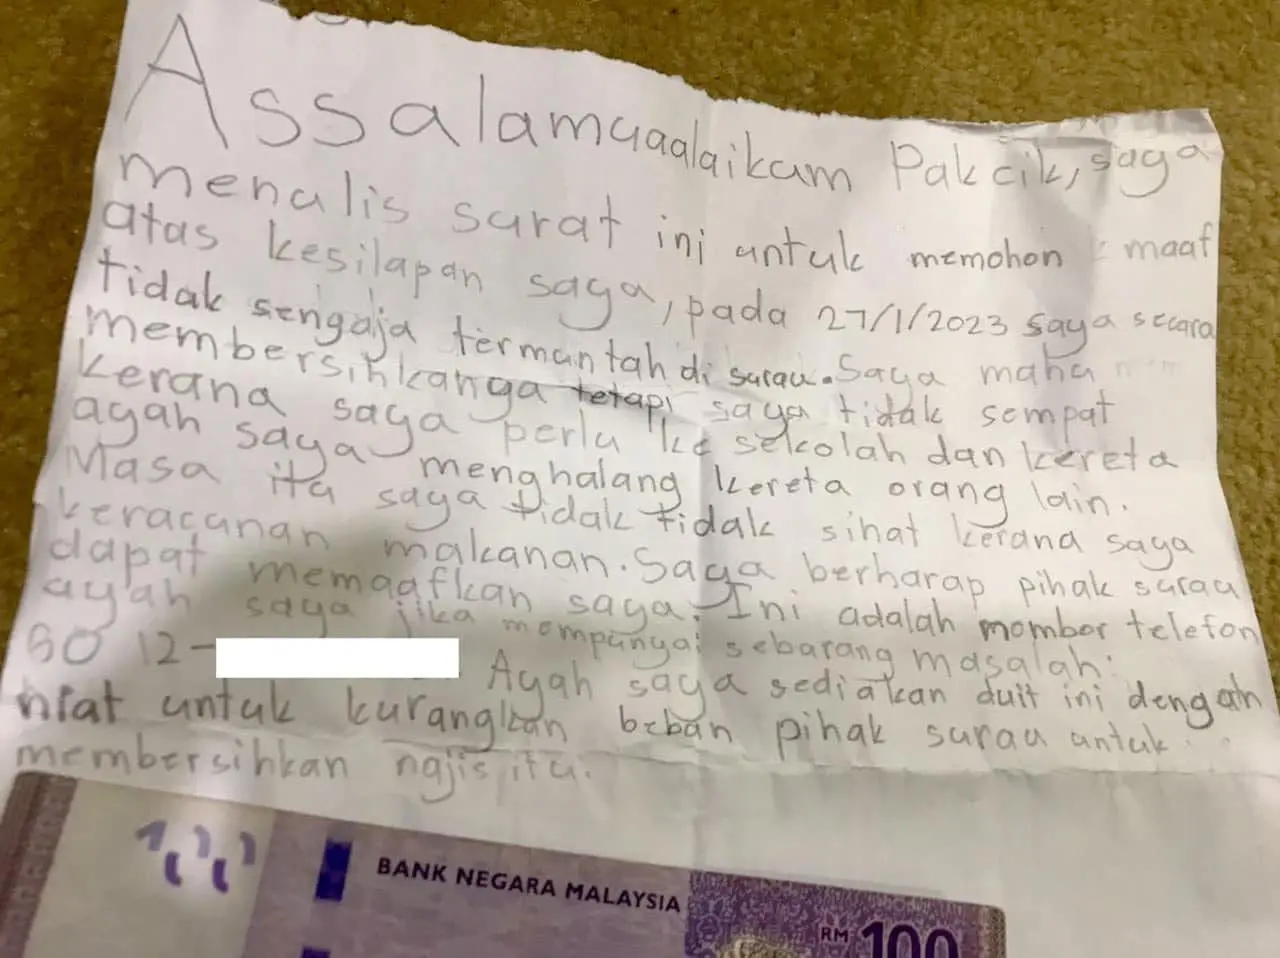 Assalamuaalaikum Pakcik, saya
menulis surat ini untuk memohon maaf
atas kesilapan saya, pada 27/1/2023 saya secara
tidak sengaja termuntah di surau. Saya mahu
membersihkanya tetapi saya tidak sempat
kerana saya perlu ke sekolah dan kereta
ayah saya menghalang kereta orang lain.
Masa itu saya tidak tidak sihat kerana saya
keracunan makanan. Saya berharap pihak surau
dapat memaafkan saya. Ini adalah nombor telefon
ayah saya jika mempunyai sebarang masalah:
60 12-
Ayah saya sediakan duit ini dengan
niat untuk kurangkan beban pihak surau untuk
membersihkan najis itu.
BANK NEGARA MALAYSIA
RM 100